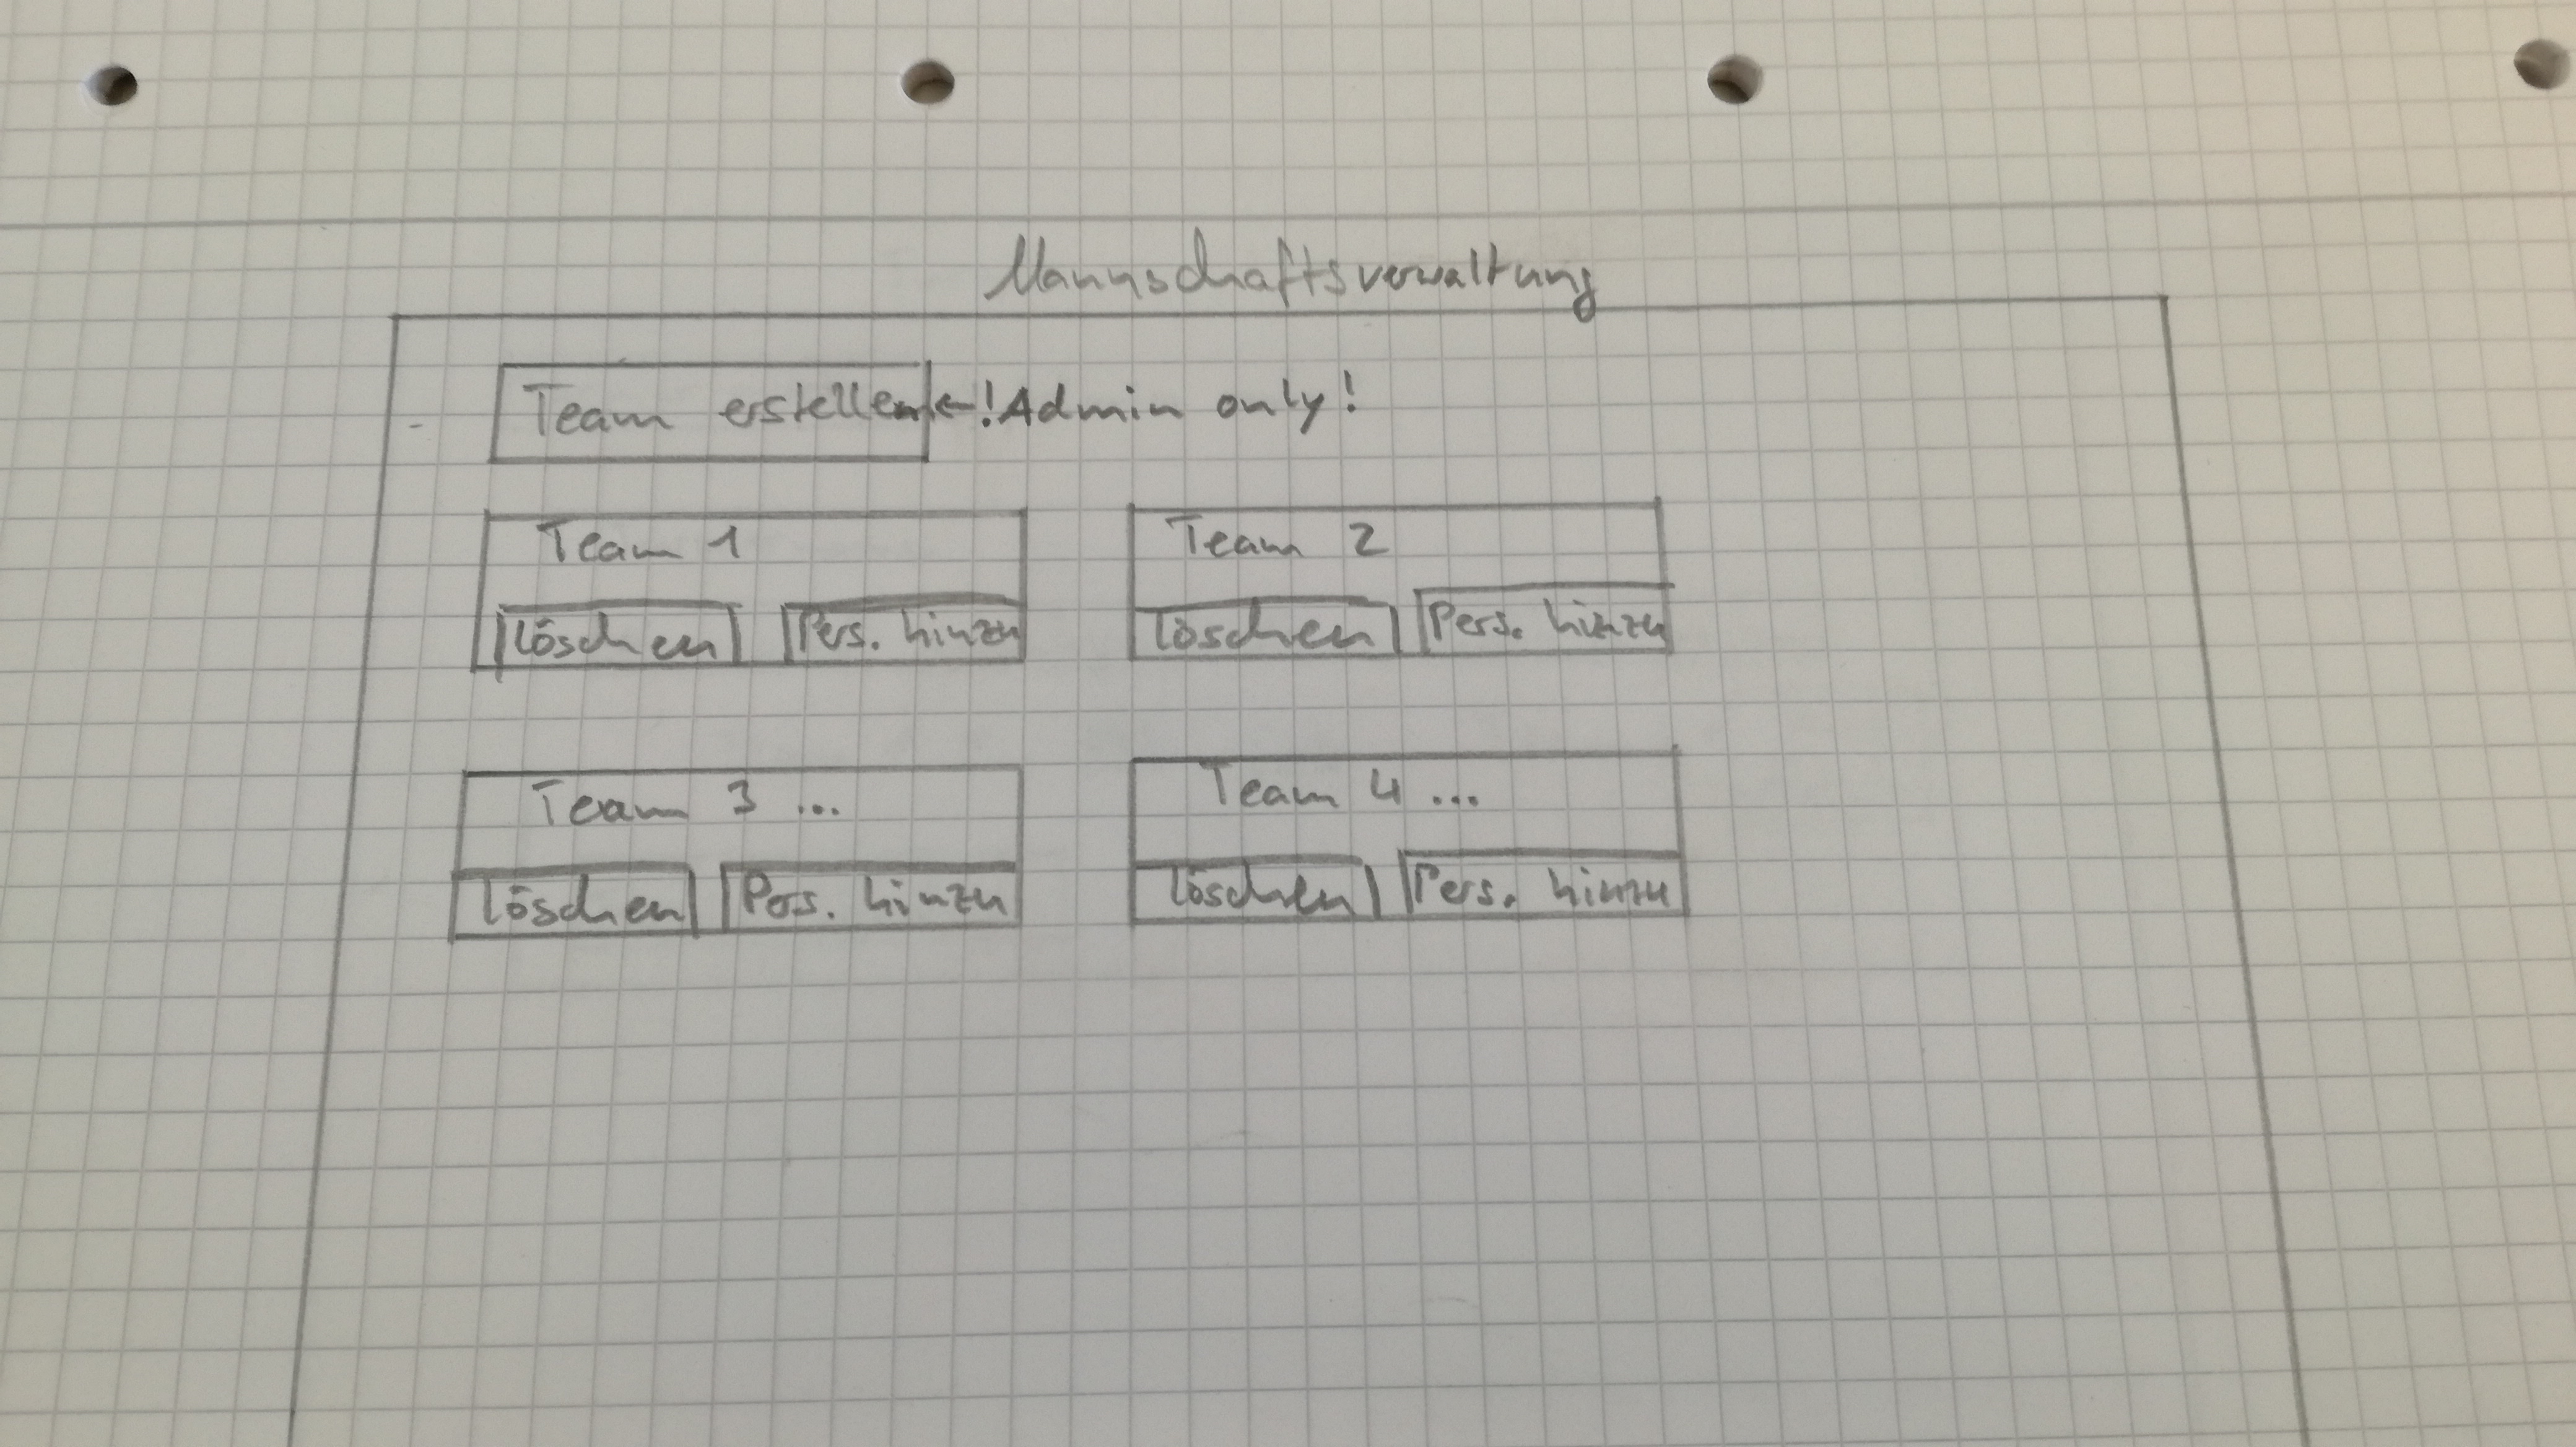 Mannschaftsverwaltung
Team erstellen ←!Admin only!
Team 1 Team 2
löschen Pers. hinzu löschen Pers. hinzu
Team 3 ... Team 4 ...
löschen Pers. hinzu löschen Pers. hinzu